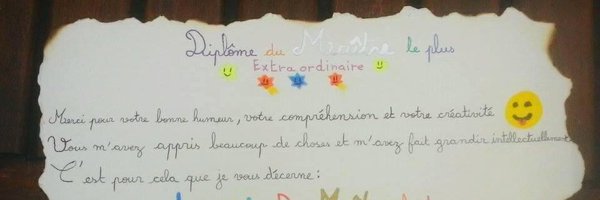 Diplôme du Maître le plus
Extraordinaire
Merci pour votre bonne humeur, votre compréhension et votre créativité
Vous m'avez appris beaucoup de choses et m'avez fait grandir intellectuellement
C'est pour cela que je vous décerne :